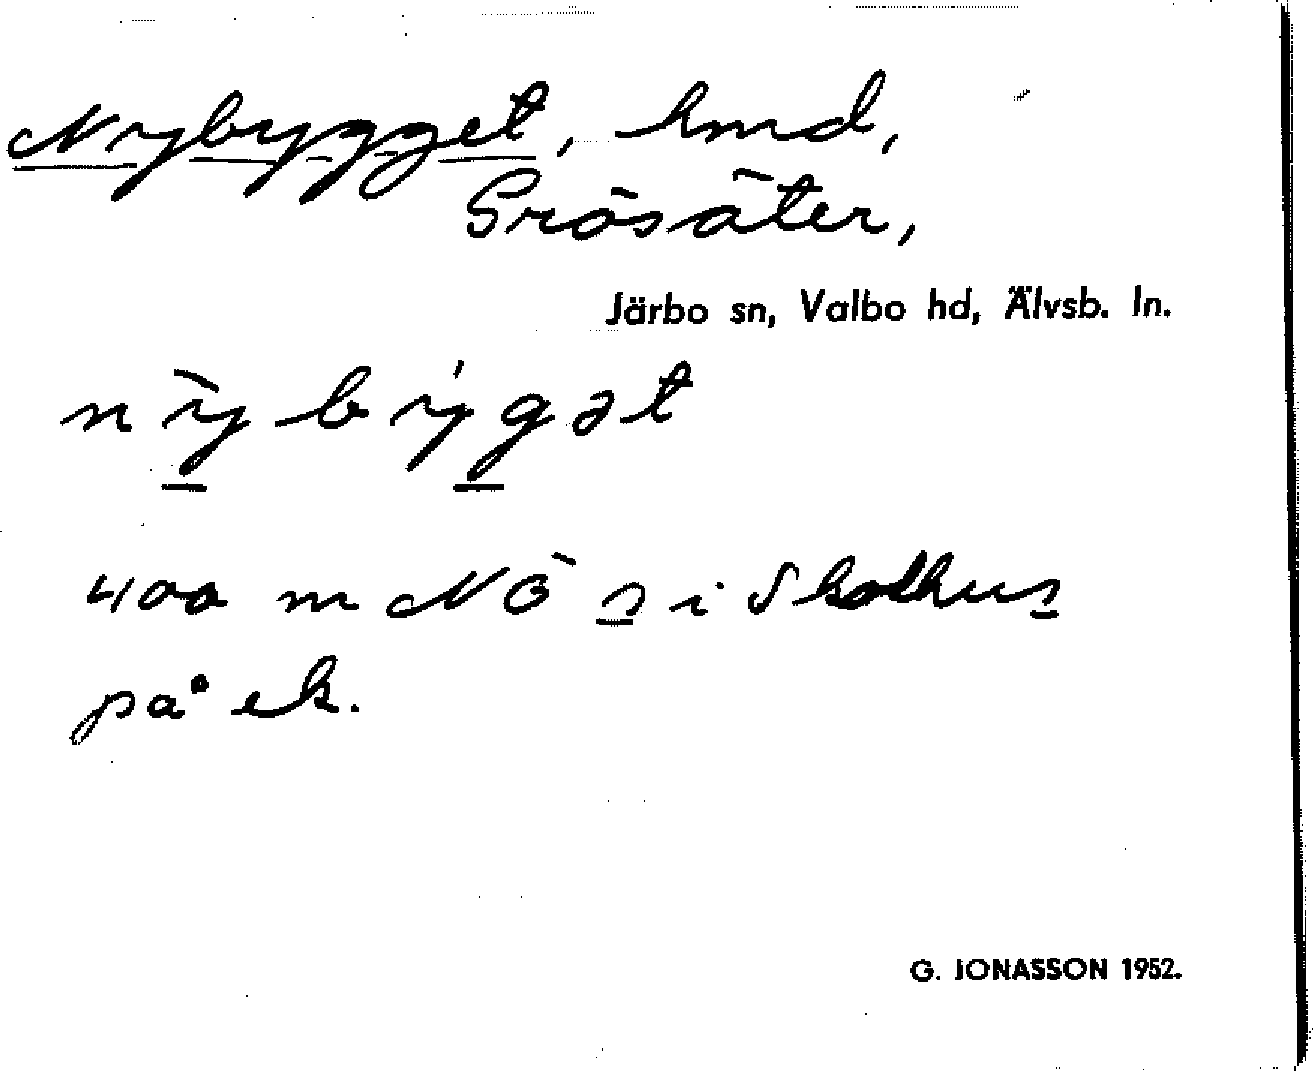 Nybygget, hmd,
Grösäter,
Järbo sn, Valbo hd, Älvsb. ln.
nỳbýgət
400 m NÖ s i Skolhus
på ek.
G. JONASSON 1952.